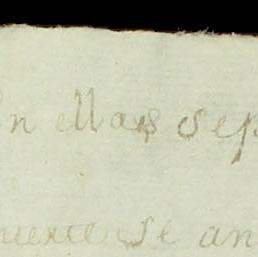 en ellas sep
se an